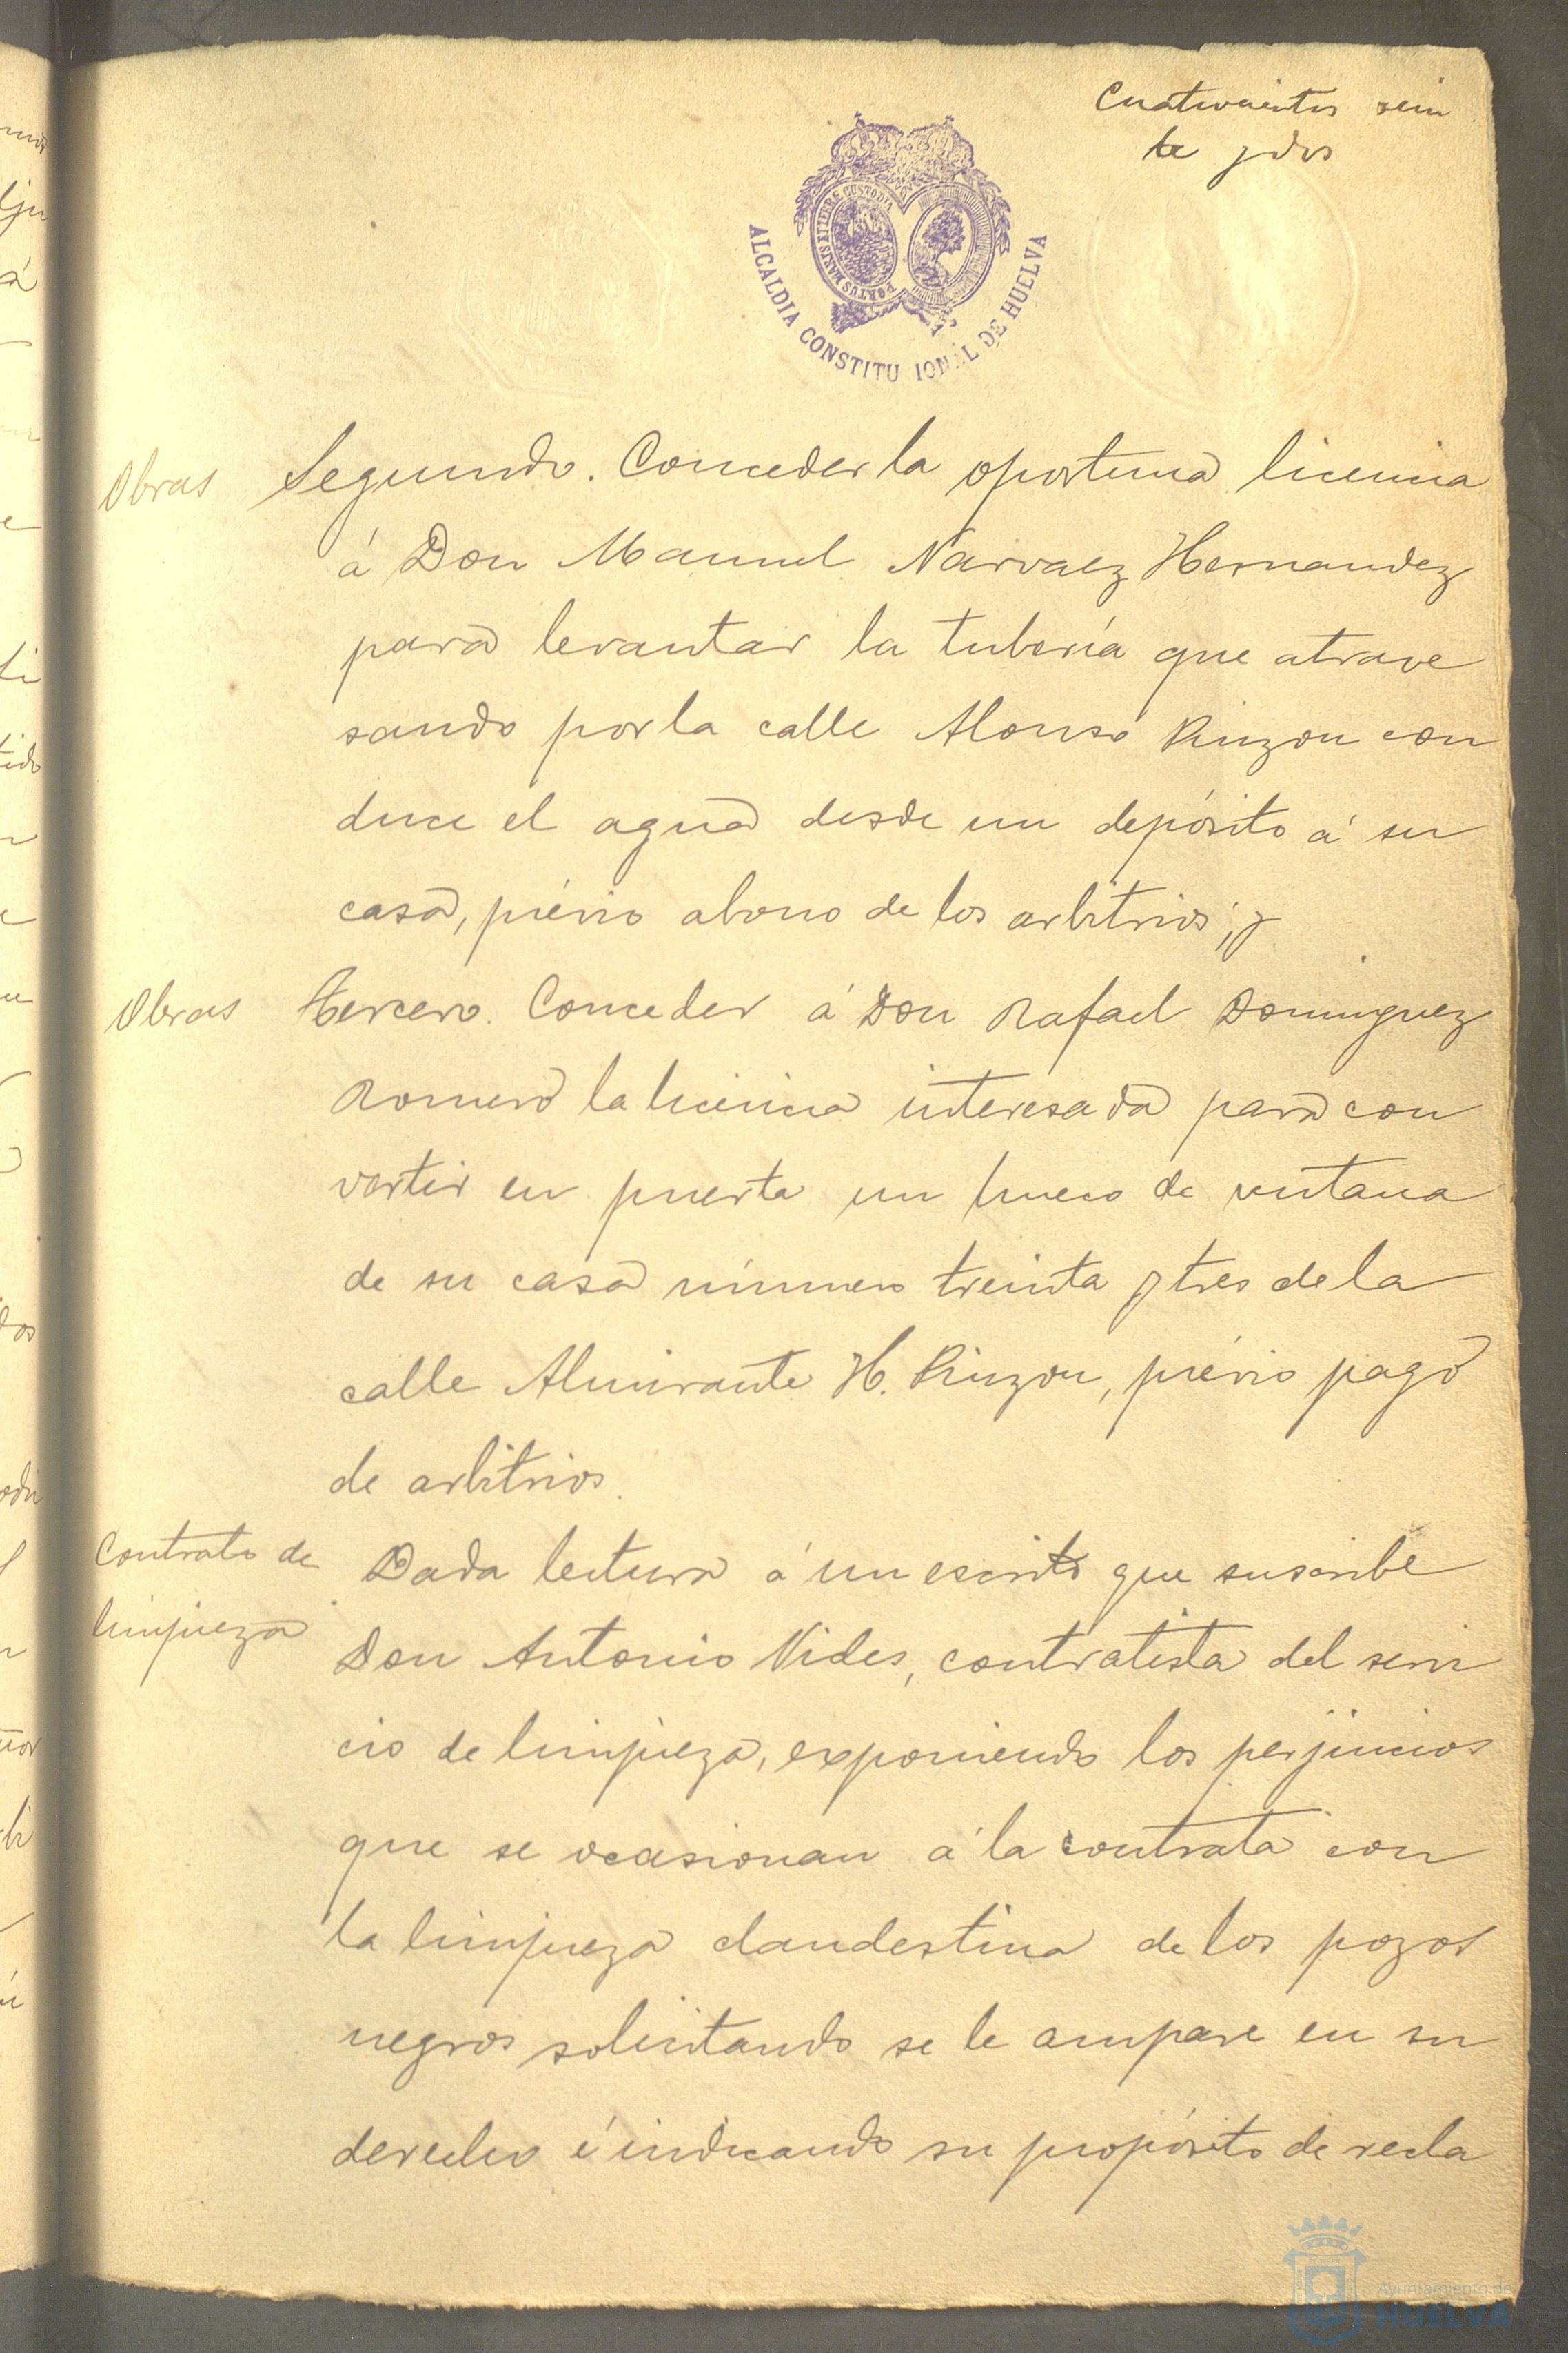 Cuatrocientos vein
te y dos
PORTUS MARIS ET TERRE CUSTODIA
ALCALDIA CONSTITU IONAL DE HUELVA
Obras
Segundo. Conceder la oportuna licencia
á Don Manuel Narvaez Hernandez
para levantar la tubería que atrave
sando por la calle Alonso Pinzon con
duce el agua desde un depósito á su
casa, prévio abono de los arbitrios; y
Obras
tercero. Conceder á Don Rafael Dominguez
Romero la licencia interesada para con
vertir en puerta un hueco de ventana
de su casa número treinta y tres de la
calle Almirante H. Pinzon, prévio pago
de arbitrios.
Contrato de
limpieza
Dada lectura á un escrito que suscribe
Don Antonio Vides, contratista del servi
cio de limpieza, exponiendo los perjuicios
que se ocasionan á la contrata con
la limpieza clandestina de los pozos
negros solicitando se le ampare en su
derecho é indicando su propósito de recla
Ayuntamiento de
HUELVA